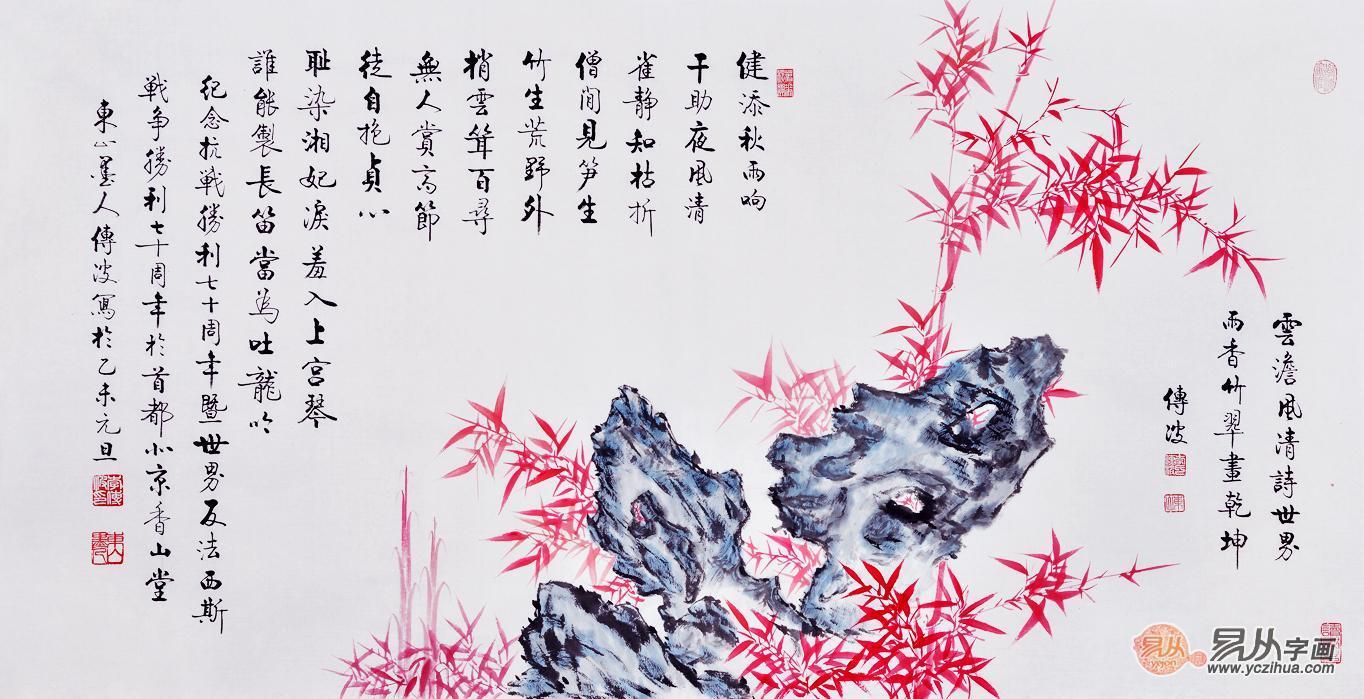 雲澹風清詩世界
雨香竹翠畫乾坤
傳波
健添秋雨响
干助夜風清
雀静知枯折
僧閒見笋生
竹生荒野外
梢雲聳百尋
無人賞高節
徒自抱貞心
恥染湘妃淚羞入上宮琴
誰能製長笛當為吐龍吟
紀念抗戰勝利七十周年暨世界反法西斯
戰争勝利七十周年於首都北京香山堂
東山墨人傳波寫於乙未元旦
易从字画
www.yczihua.com